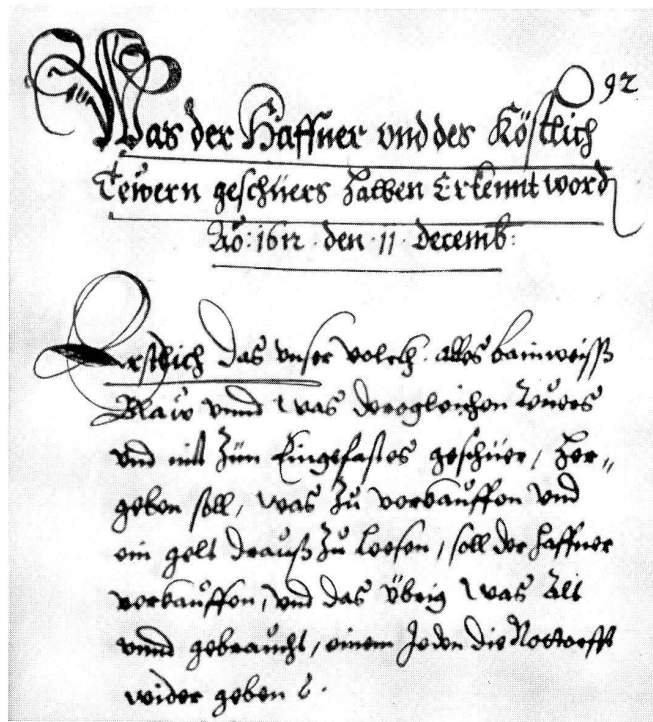 92
Was der Haffner vnd des Köstlich
Tewern geschüers halben Erkennt word
Ao: 1612 · den · 11 · decemb:
Erstlich das vnser volckh alles bainweiss
Blaw vnnd was dergleichen teures
vnd mit Zün Eingefastes geschüer, her„
geben soll, was Zu verkauffen vnd
ein gelt drauß Zu loesen, soll der haffner
verkauffen, vnd das übrig was Alt
vnnd gebraucht, einem Jeden die Nottorfft
wider geben